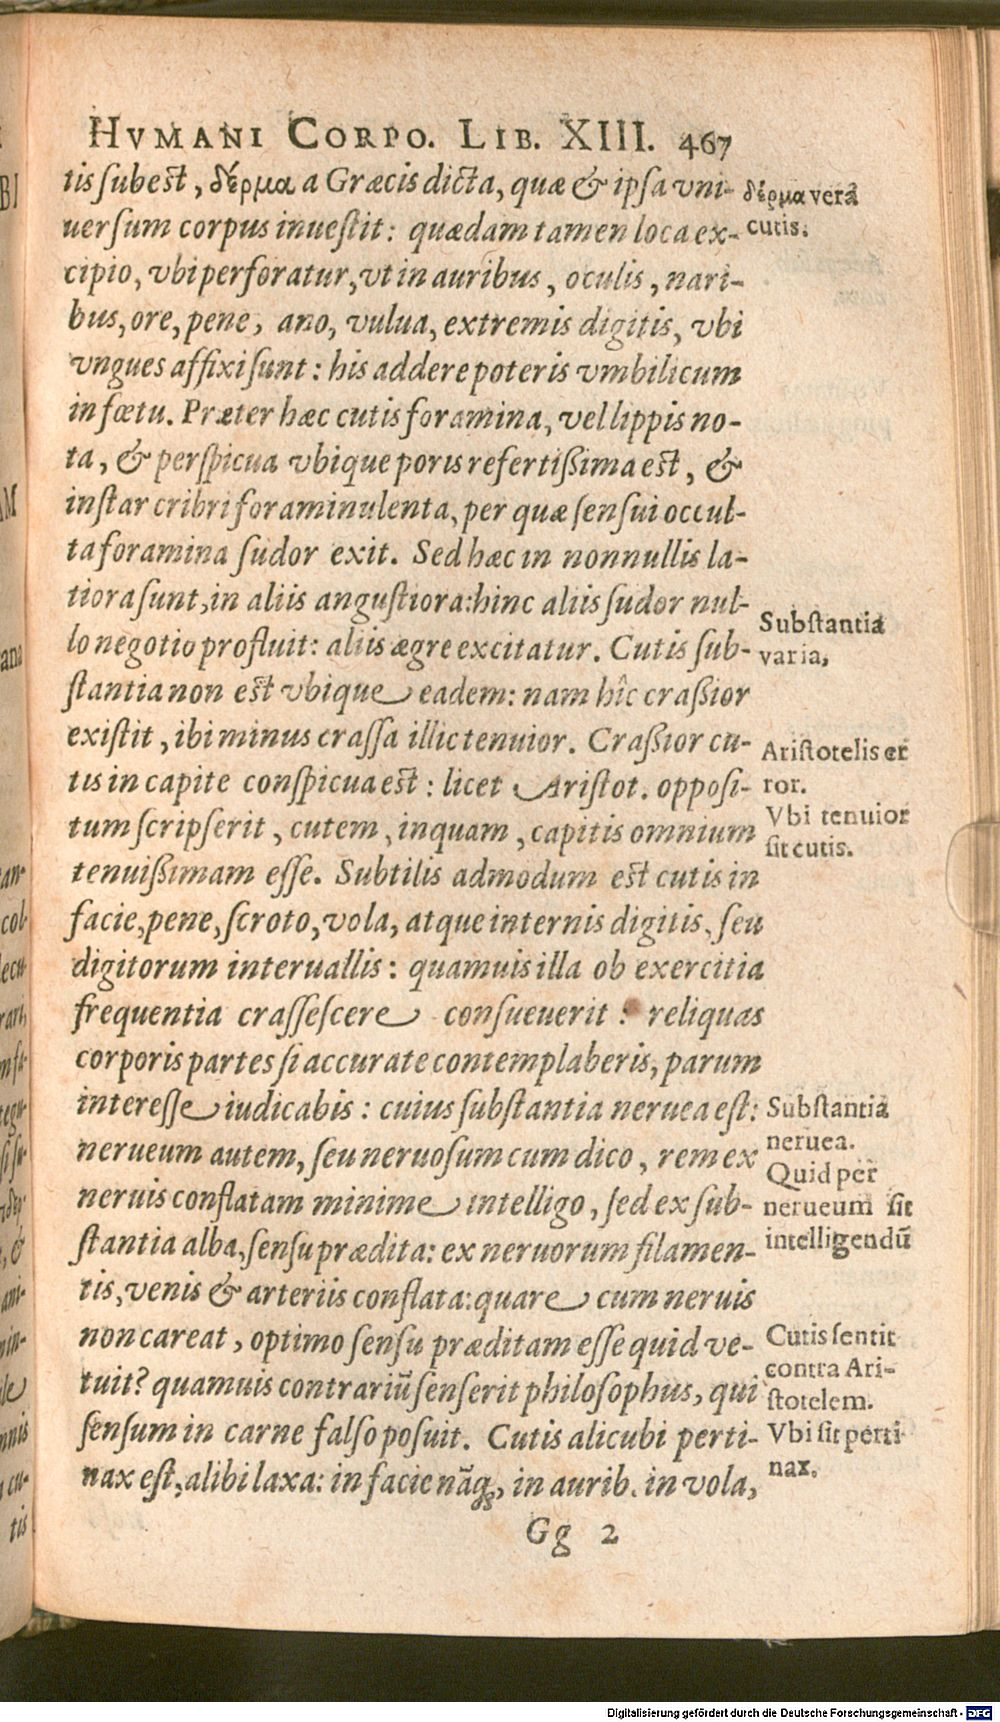 HVMANI CORPO. LIB. XIII. 467
tis subest, δέρμα a Græcis dicta, quæ & ipsa vni-
uersum corpus inuestit: quædam tamen loca ex-
cipio, vbi perforatur, vt in auribus, oculis, nari-
bus, ore, pene, ano, vulua, extremis digitis, vbi
vngues affixi sunt: his addere poteris vmbilicum
in fœtu. Præter hæc cutis foramina, vel lippis no-
ta, & perspicua vbique poris refertißima est, &
instar cribri foraminulenta, per quæ sensui occul-
ta foramina sudor exit. Sed hæc in nonnullis la-
tiora sunt, in aliis angustiora: hinc aliis sudor nul-
lo negotio profluit: aliis ægre excitatur. Cutis sub-
stantia non est vbique eadem: nam hîc craßior
existit, ibi minus crassa illic tenuior. Craßior cu-
tis in capite conspicua est: licet Aristot. opposi-
tum scripserit, cutem, inquam, capitis omnium
tenuißimam esse. Subtilis admodum est cutis in
facie, pene, scroto, vola, atque internis digitis, seu
digitorum interuallis: quamuis illa ob exercitia
frequentia crassescere consueuerit: reliquas
corporis partes si accurate contemplaberis, parum
interesse iudicabis: cuius substantia neruea est:
nerueum autem, seu neruosum cum dico, rem ex
neruis conflatam minime intelligo, sed ex sub-
stantia alba, sensu prædita: ex neruorum filamen-
tis, venis & arteriis conflata: quare cum neruis
non careat, optimo sensu præditam esse quid ve-
tuit? quamuis contrariũ senserit philosophus, qui
sensum in carne falso posuit. Cutis alicubi perti-
nax est, alibi laxa: in facie nãq;, in aurib. in vola,
Gg 2
δέρμα vera
cutis.
Substantia
varia,
Aristotelis er
ror.
Vbi tenuior
sit cutis.
Substantia
neruea.
Quid per
nerueum sit
intelligendũ
Cutis sentit
contra Ari-
stotelem.
Vbi sit perti
nax.
Digitalisierung gefördert durch die Deutsche Forschungsgemeinschaft - DFG